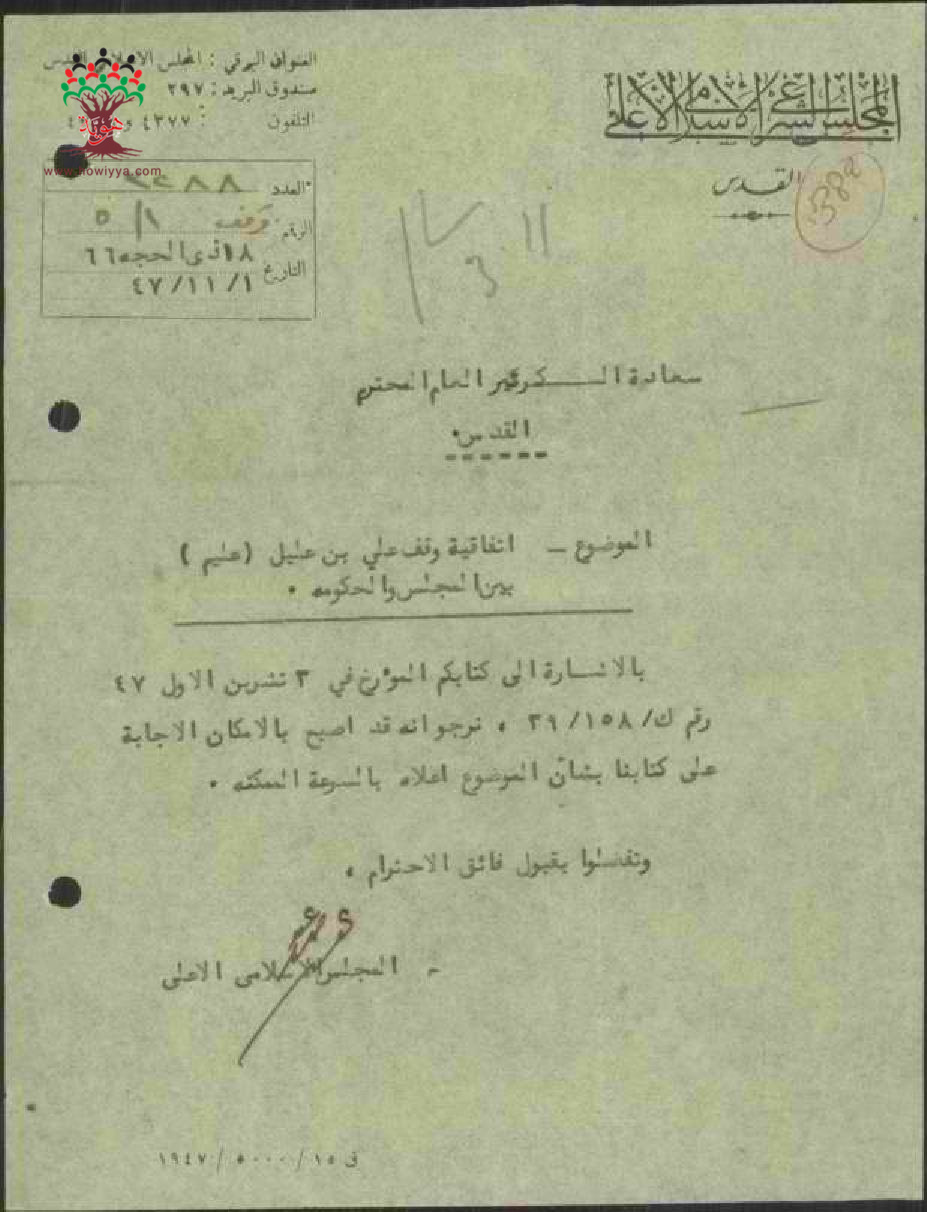 المجلس الشرعي الاسلامي الاعلى
القدس
5388
العنوان البرقي : المجلس الاسلامي القدس
صندوق البريد : ٢٩٧
التلفون : ٤٣٧٧ و
هوية
www.howiyya.com
العدد ٢٤٨٨
الرقم وقف ٥/١
التاريخ ١٨ذى الحجه ٦٦
٤٧/١١/١
سعادة الســـكرتير العام المحترم
القدس٠
الموضوع ــ اتفاقية وقف علي بن عليل (عليم )
بين المجلس والحكومه ٠
بالاشارة الى كتابكم المؤرخ في ٣ تشرين الاول ٤٧
رقم ك/٣٩/١٥٨ ، نرجو انه قد اصبح بالامكان الاجابة
على كتابنا بشأن الموضوع اعلاه بالسرعة الممكنه ٠
وتفضلوا بقبول فائق الاحترام ،
ـ المجلس الاسلامى الاعلى
ق ١٥ / ٥٠٠٠ / ١٩٤٧